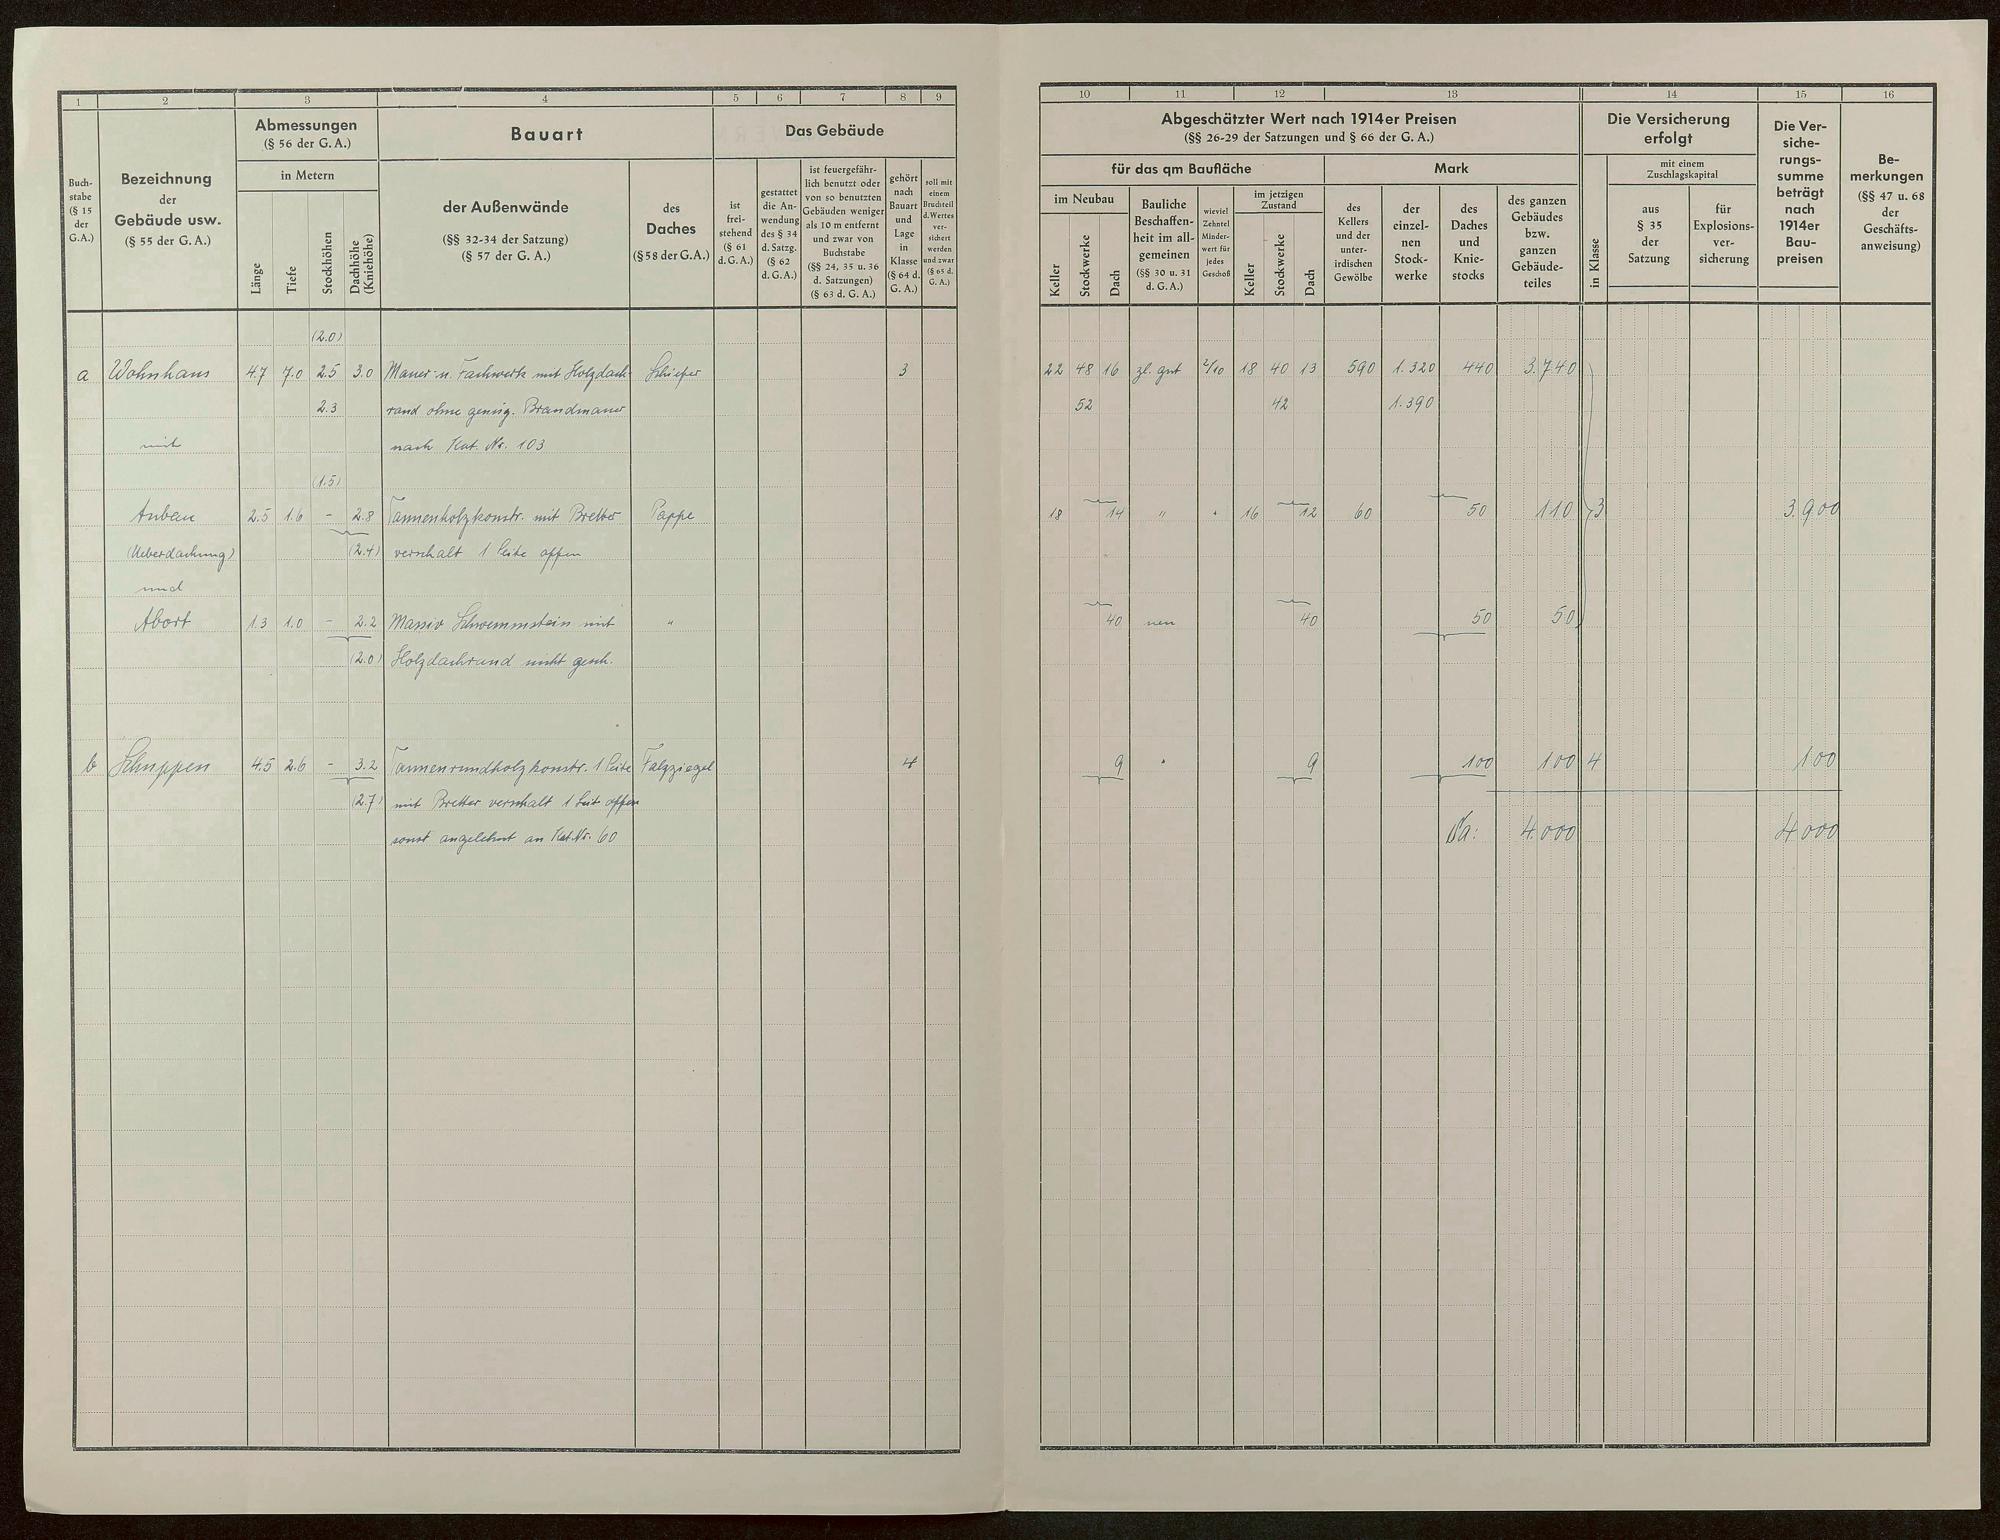 1 2 3 4 5 6 7 8 9
Buch-
stabe
(§ 15
der
G.A.)
Bezeichnung
der
Gebäude usw.
(§ 55 der G. A.)
Abmessungen
(§ 56 der G. A.)
in Metern
Länge
Tiefe
Stockhöhen
Dachhöhe
(Kniehöhe)
Bauart
der Außenwände
(§§ 32-34 der Satzung)
(§ 57 der G. A.)
des
Daches
(§ 58 der G. A.)
Das Gebäude
ist
frei-
stehend
(§ 61
d. G. A.)
gestattet
die An-
wendung
des § 34
d. Satzg.
(§ 62
d. G. A.)
ist feuergefähr-
lich benutzt oder
von so benutzten
Gebäuden weniger
als 10 m entfernt
und zwar von
Buchstabe
(§§ 24, 35 u. 36
d. Satzungen)
(§ 63 d. G. A.)
gehört
nach
Bauart
und
Lage
in
Klasse
(§ 64 d.
G. A.)
soll mit
einem
Bruchteil
d. Wertes
ver-
sichert
werden
und zwar
(§ 65 d.
G. A.)
(2.0)
a Wohnhaus 4.7 7.0 2.5 3.0 Mauer u. Fachwerk mit Holzdach- Schiefer 3
2.3 rand ohne genüg. Brandmauer
mit nach Kat. Nr. 103
(1.5)
Anbau 2.5 1.6 - 2.8 Tannenholzkonstr. mit Bretter Pappe
(Ueberdachung) (2.4) verschalt 1 Seite offen
und
Abort 1.3 1.0 - 2.2 Massiv Schwemmstein mit "
(2.0) Holzdachrand nicht gesch.
b Schuppen 4.5 2.6 - 3.2 Tannenrundholzkonstr. 1 Seite Falzziegel 4
(2.7) mit Bretter verschalt 1 Seite offen
sonst angelehnt an Kat. Nr. 60
10 11 12 13 14 15 16
Abgeschätzter Wert nach 1914er Preisen
(§§ 26-29 der Satzungen und § 66 der G. A.)
für das qm Baufläche
im Neubau
Keller
Stockwerke
Dach
Bauliche
Beschaffen-
heit im all-
gemeinen
(§§ 30 u. 31
d. G. A.)
wieviel
Zehntel
Minder-
wert für
jedes
Geschoß
im jetzigen
Zustand
Keller
Stockwerke
Dach
Mark
des
Kellers
und der
unter-
irdischen
Gewölbe
der
einzel-
nen
Stock-
werke
des
Daches
und
Knie-
stocks
des ganzen
Gebäudes
bzw.
ganzen
Gebäude-
teiles
Die Versicherung
erfolgt
in Klasse
mit einem
Zuschlagskapital
aus
§ 35
der
Satzung
für
Explosions-
ver-
sicherung
Die Ver-
siche-
rungs-
summe
beträgt
nach
1914er
Bau-
preisen
Be-
merkungen
(§§ 47 u. 68
der
Geschäfts-
anweisung)
22 48 16 zl. gut 2/10 18 40 13 590 1.320 440 3.740
52 42 1.390
18 14 " " 16 12 60 50 110 3 3.900
40 neu 40 50 50
9 " 9 100 100 4 100
Sa: 4.000 4.000